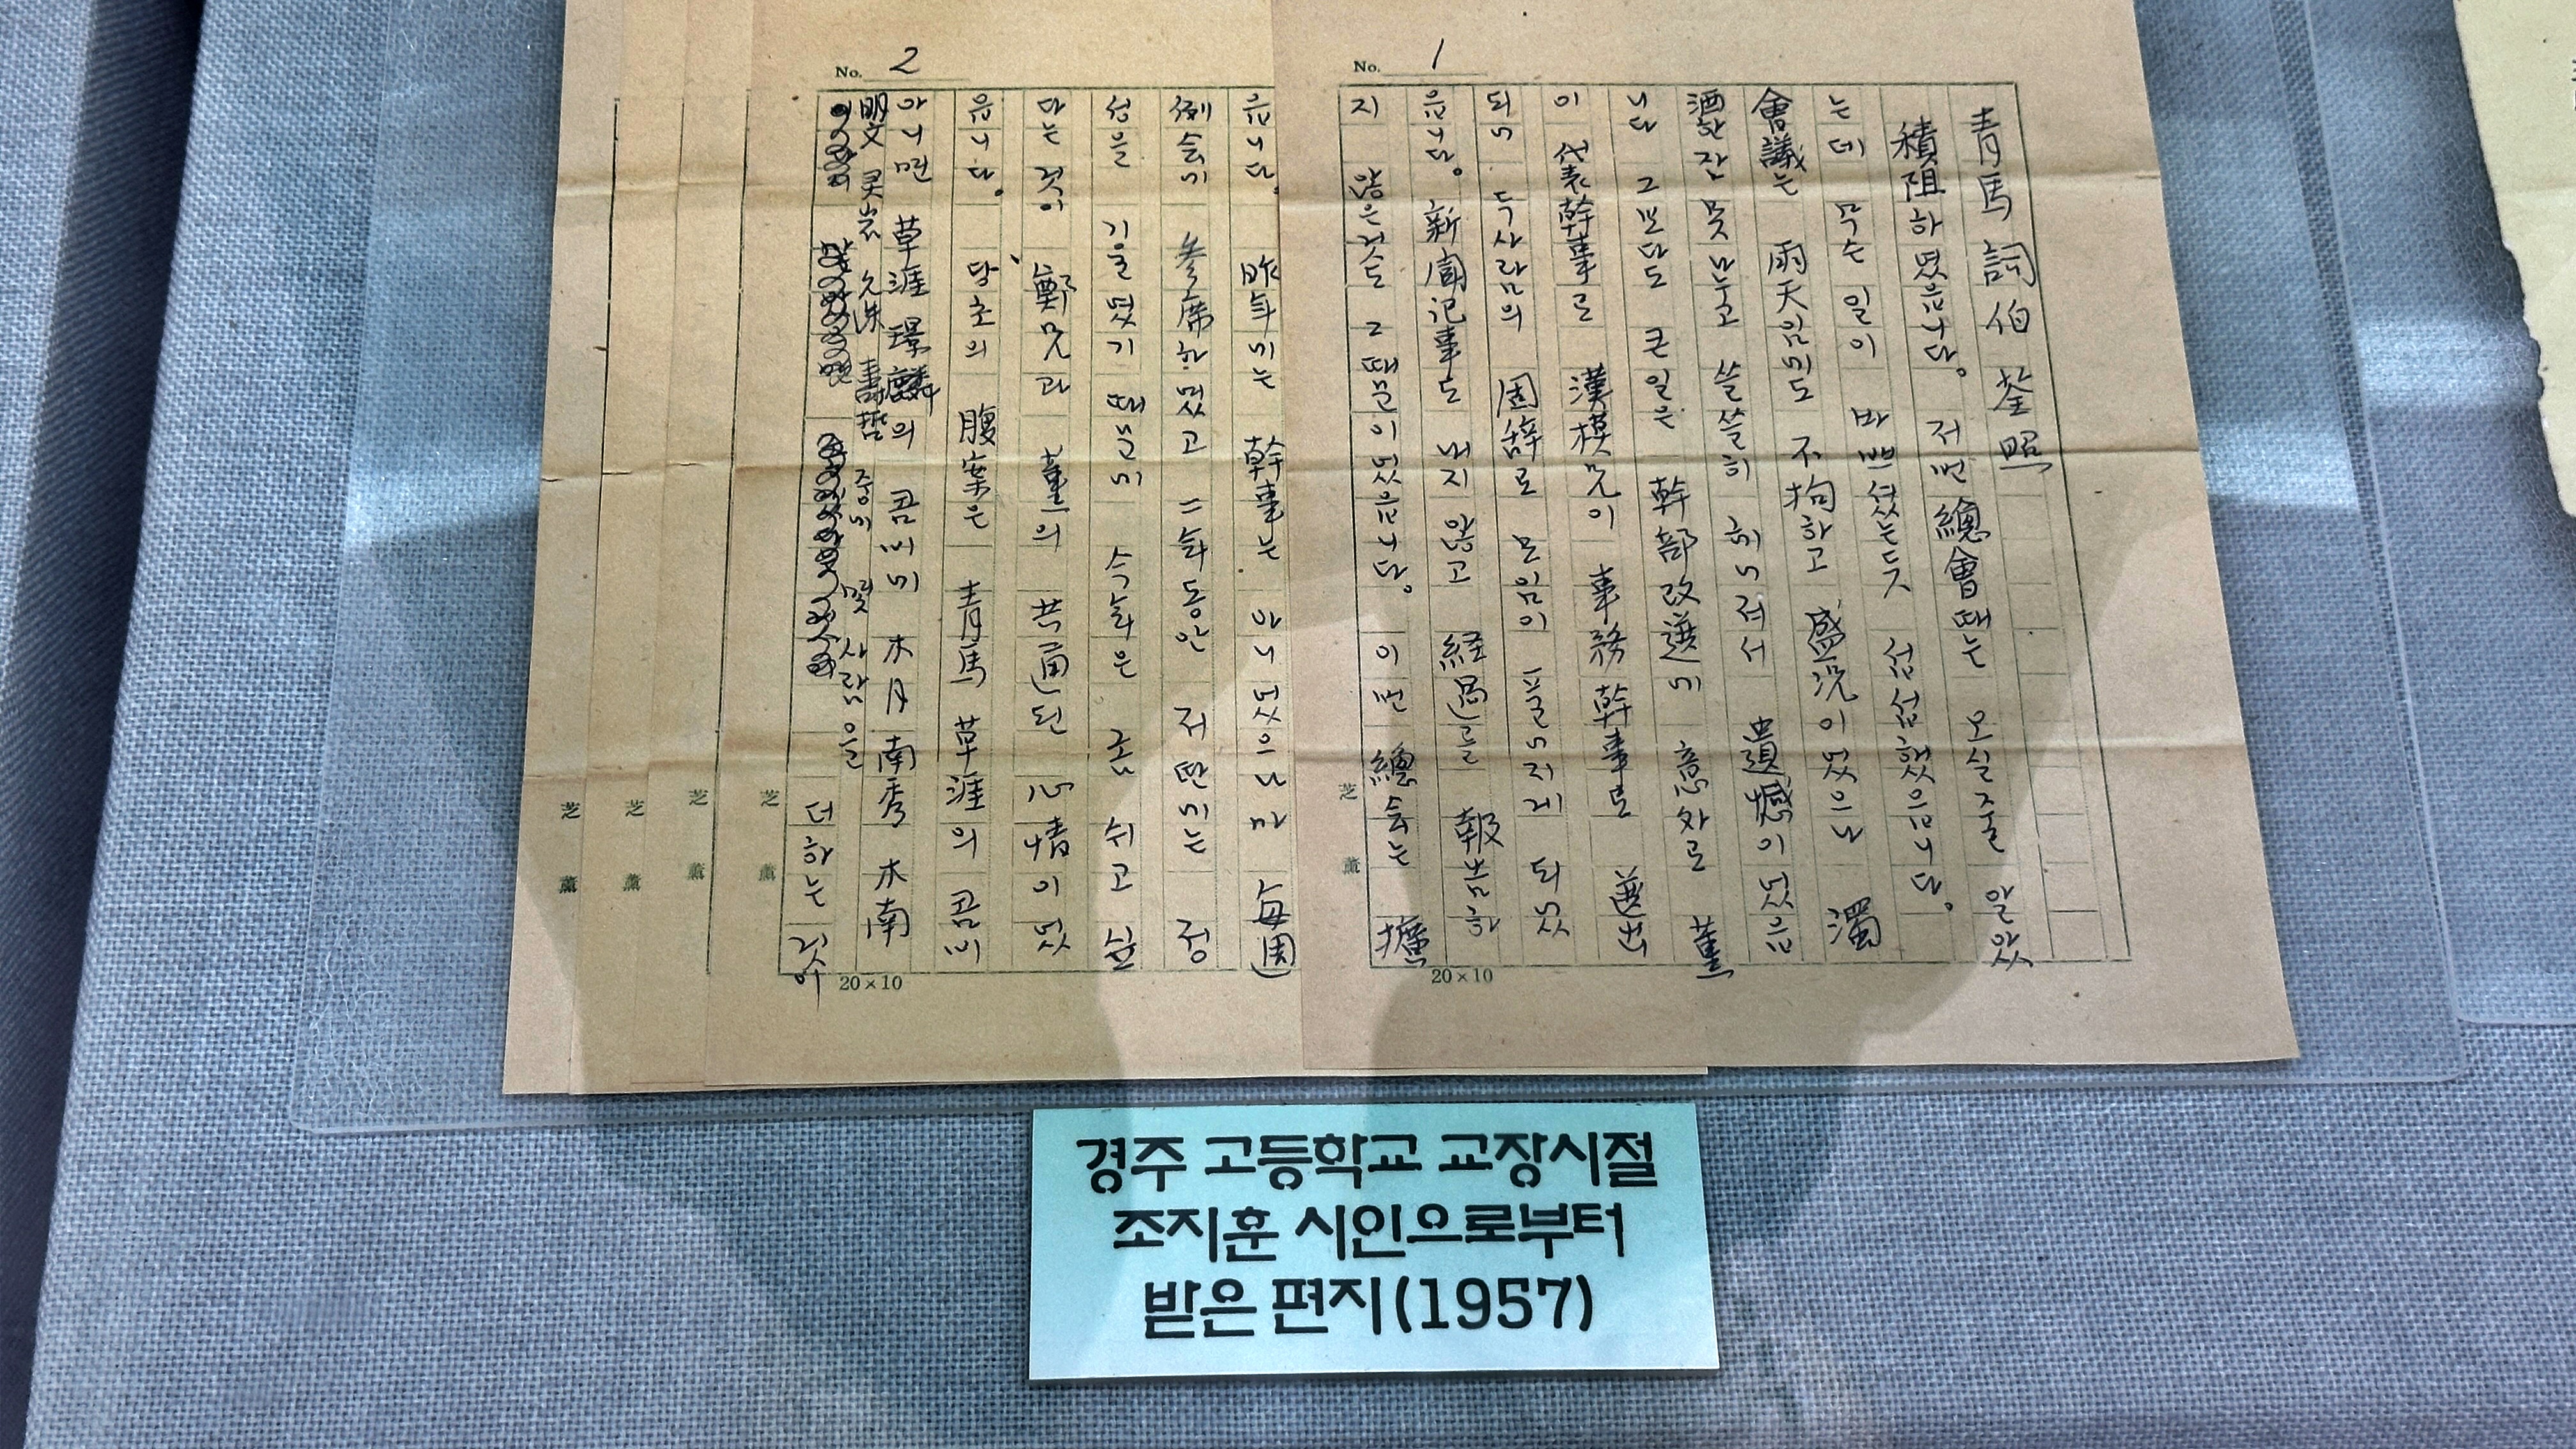 No. 1
青馬 詞伯 荃照
積阻하였읍니다. 저번 總會때는 오실줄 알았
는데 무슨 일이 바쁘셨는듯 섭섭했읍니다.
會議는 雨天임에도 不拘하고 盛況이었으나 濁
酒한잔 못 난누고 쓸쓸히 헤어져서 遺憾이었읍
니다 그보다도 큰일은 幹部改選에 意外로 薰
이 代表幹事로 漢模兄이 事務幹事로 選出
되어 두사람의 固辭로 모임이 프러지게 되었
읍니다. 新聞記事도 내지 않고 経過를 報告하
지 않은것도 그 때문이었읍니다. 이번 總会는 擴
芝 薰
20×10
No. 2
읍니다. 昨年에는 幹事는 아니었으나마 每週
例会에 參席하였고 二年동안 저딴에는 정
성을 기울였기 때문에 今年은 좀 쉬고 싶
다는 것이 鄭兄과 薰의 共通된 心情이었
읍니다. 당초의 腹案은 青馬 草涯의 콤비
아니면 草涯 璟麟의 콤비에 木月 南秀 木南
明文 灵岩 允洙 壽哲 중에 몇 사람을
더하는 것이
20×10
芝 薰
芝 薰
芝 薰
芝 薰
경주 고등학교 교장시절
조지훈 시인으로부터
받은 편지(1957)